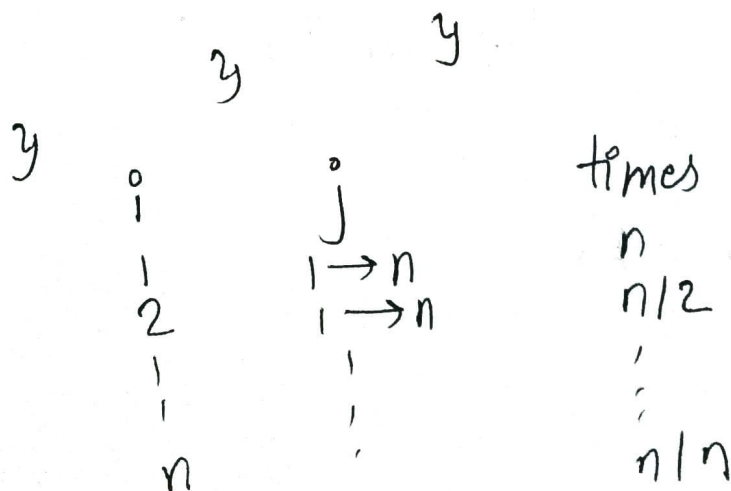 }
}
}
i j times
1 1 → n n
2 1 → n n/2
n n/n